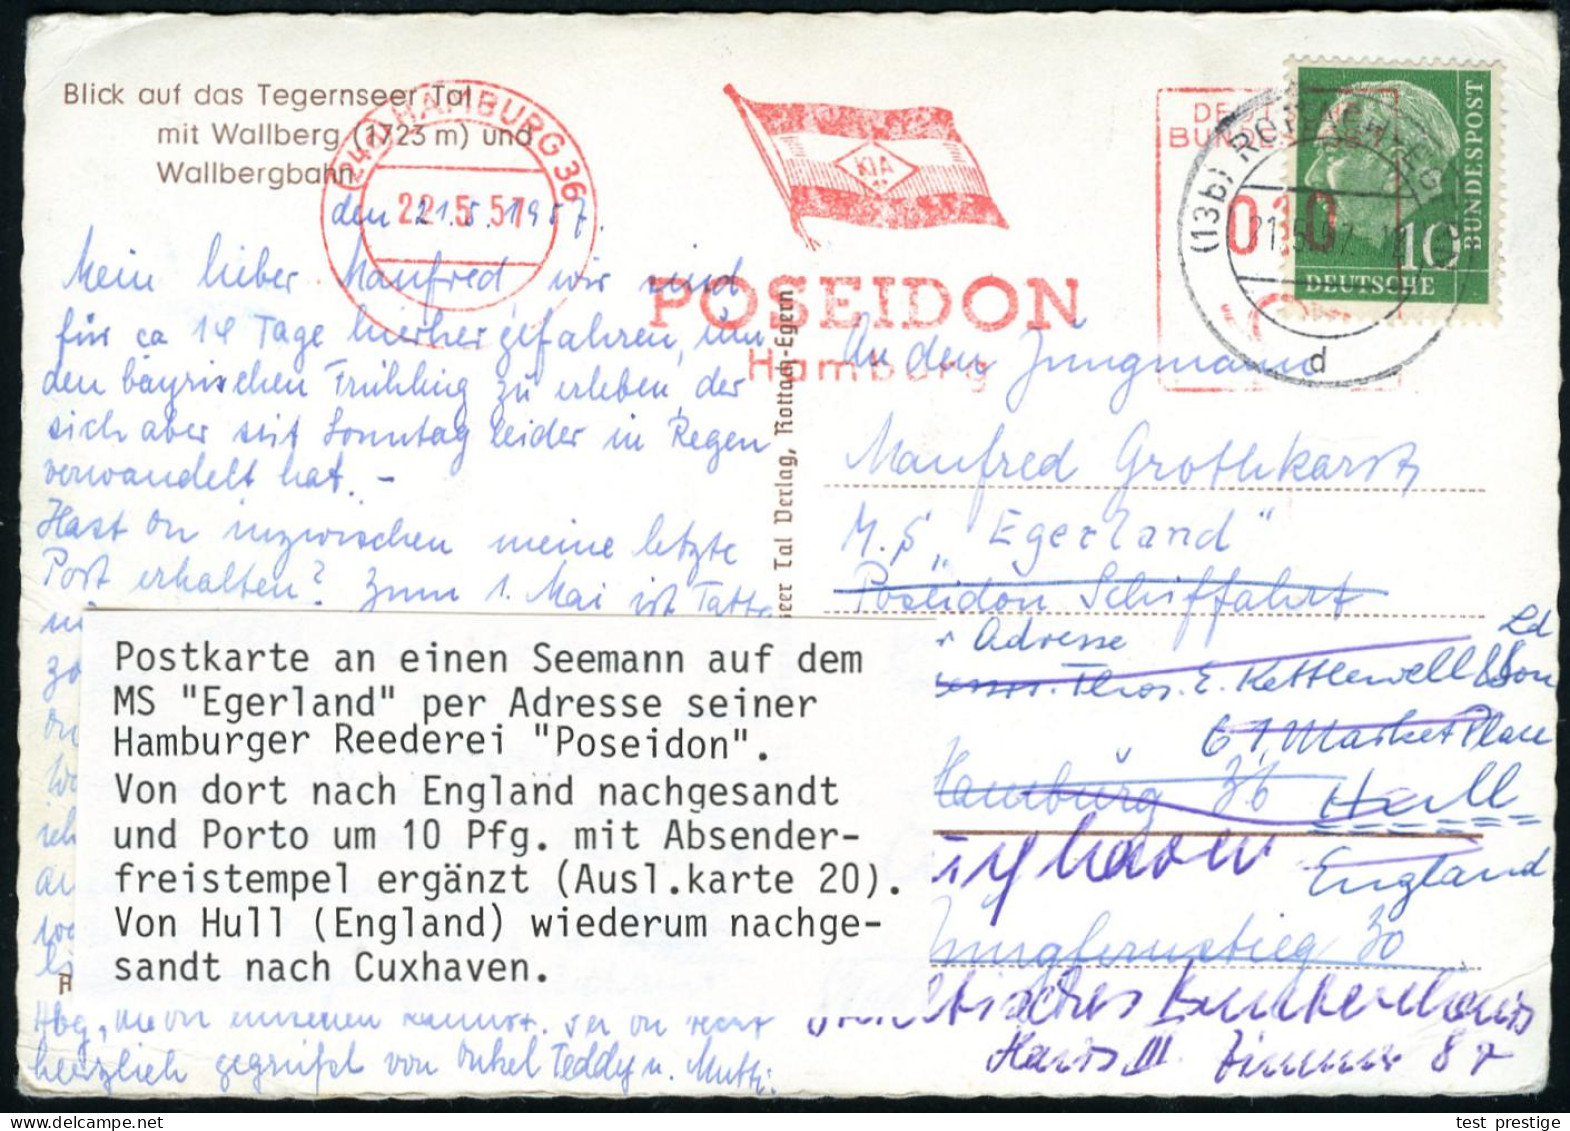 Blick auf das Tegernseer Tal
mit Wallberg (1723 m) und
Wallbergbahn
(24a) HAMBURG 36
22.5.57
KIA
POSEIDON
Hamburg
DEUTSCHE
BUNDESPOST
010
(13b) ROTTACH-EGERN
21.5.57
d
10
DEUTSCHE
BUNDESPOST
den 21.5.1957.
Mein lieber Manfred, wir sind
für ca 14 Tage hierher gefahren, um
den bayrischen Frühling zu erleben, der
sich aber seit Sonntag leider in Regen
verwandelt hat. -
Hast Du inzwischen meine letzte
Post erhalten? Zum 1. Mai ist
Hbg, wenn
herzlich gegrüßt von Onkel Teddy u. Mutti.
seer Tal Verlag, Rottach-Egern
An den Jungmann
Manfred Grothkarst
M.S. „Egerland"
Poseidon Schiffahrt
Adresse
Thos. E. Kettlewell & Son Ld
61, Market Place
Hamburg 36 Hull
England
Cuxhaven
Jungfernstieg 30
Städtisches Krankenhaus
Haus III Zimmer 87
Postkarte an einen Seemann auf dem
MS "Egerland" per Adresse seiner
Hamburger Reederei "Poseidon".
Von dort nach England nachgesandt
und Porto um 10 Pfg. mit Absender-
freistempel ergänzt (Ausl.karte 20).
Von Hull (England) wiederum nachge-
sandt nach Cuxhaven.
test_prestige